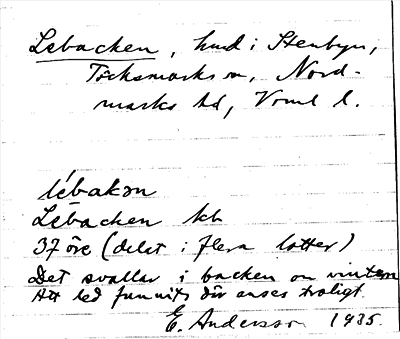 Lebacken, hmd i Stenbyn,
Töcksmarks sn, Nord-
marks hd, Vrml l.
lébakən
Lebacken lch
37 öre (delat i flera lotter)
Det svallar i backen om vintern
Att led funnits där anses troligt.
E. Andersson 1935.